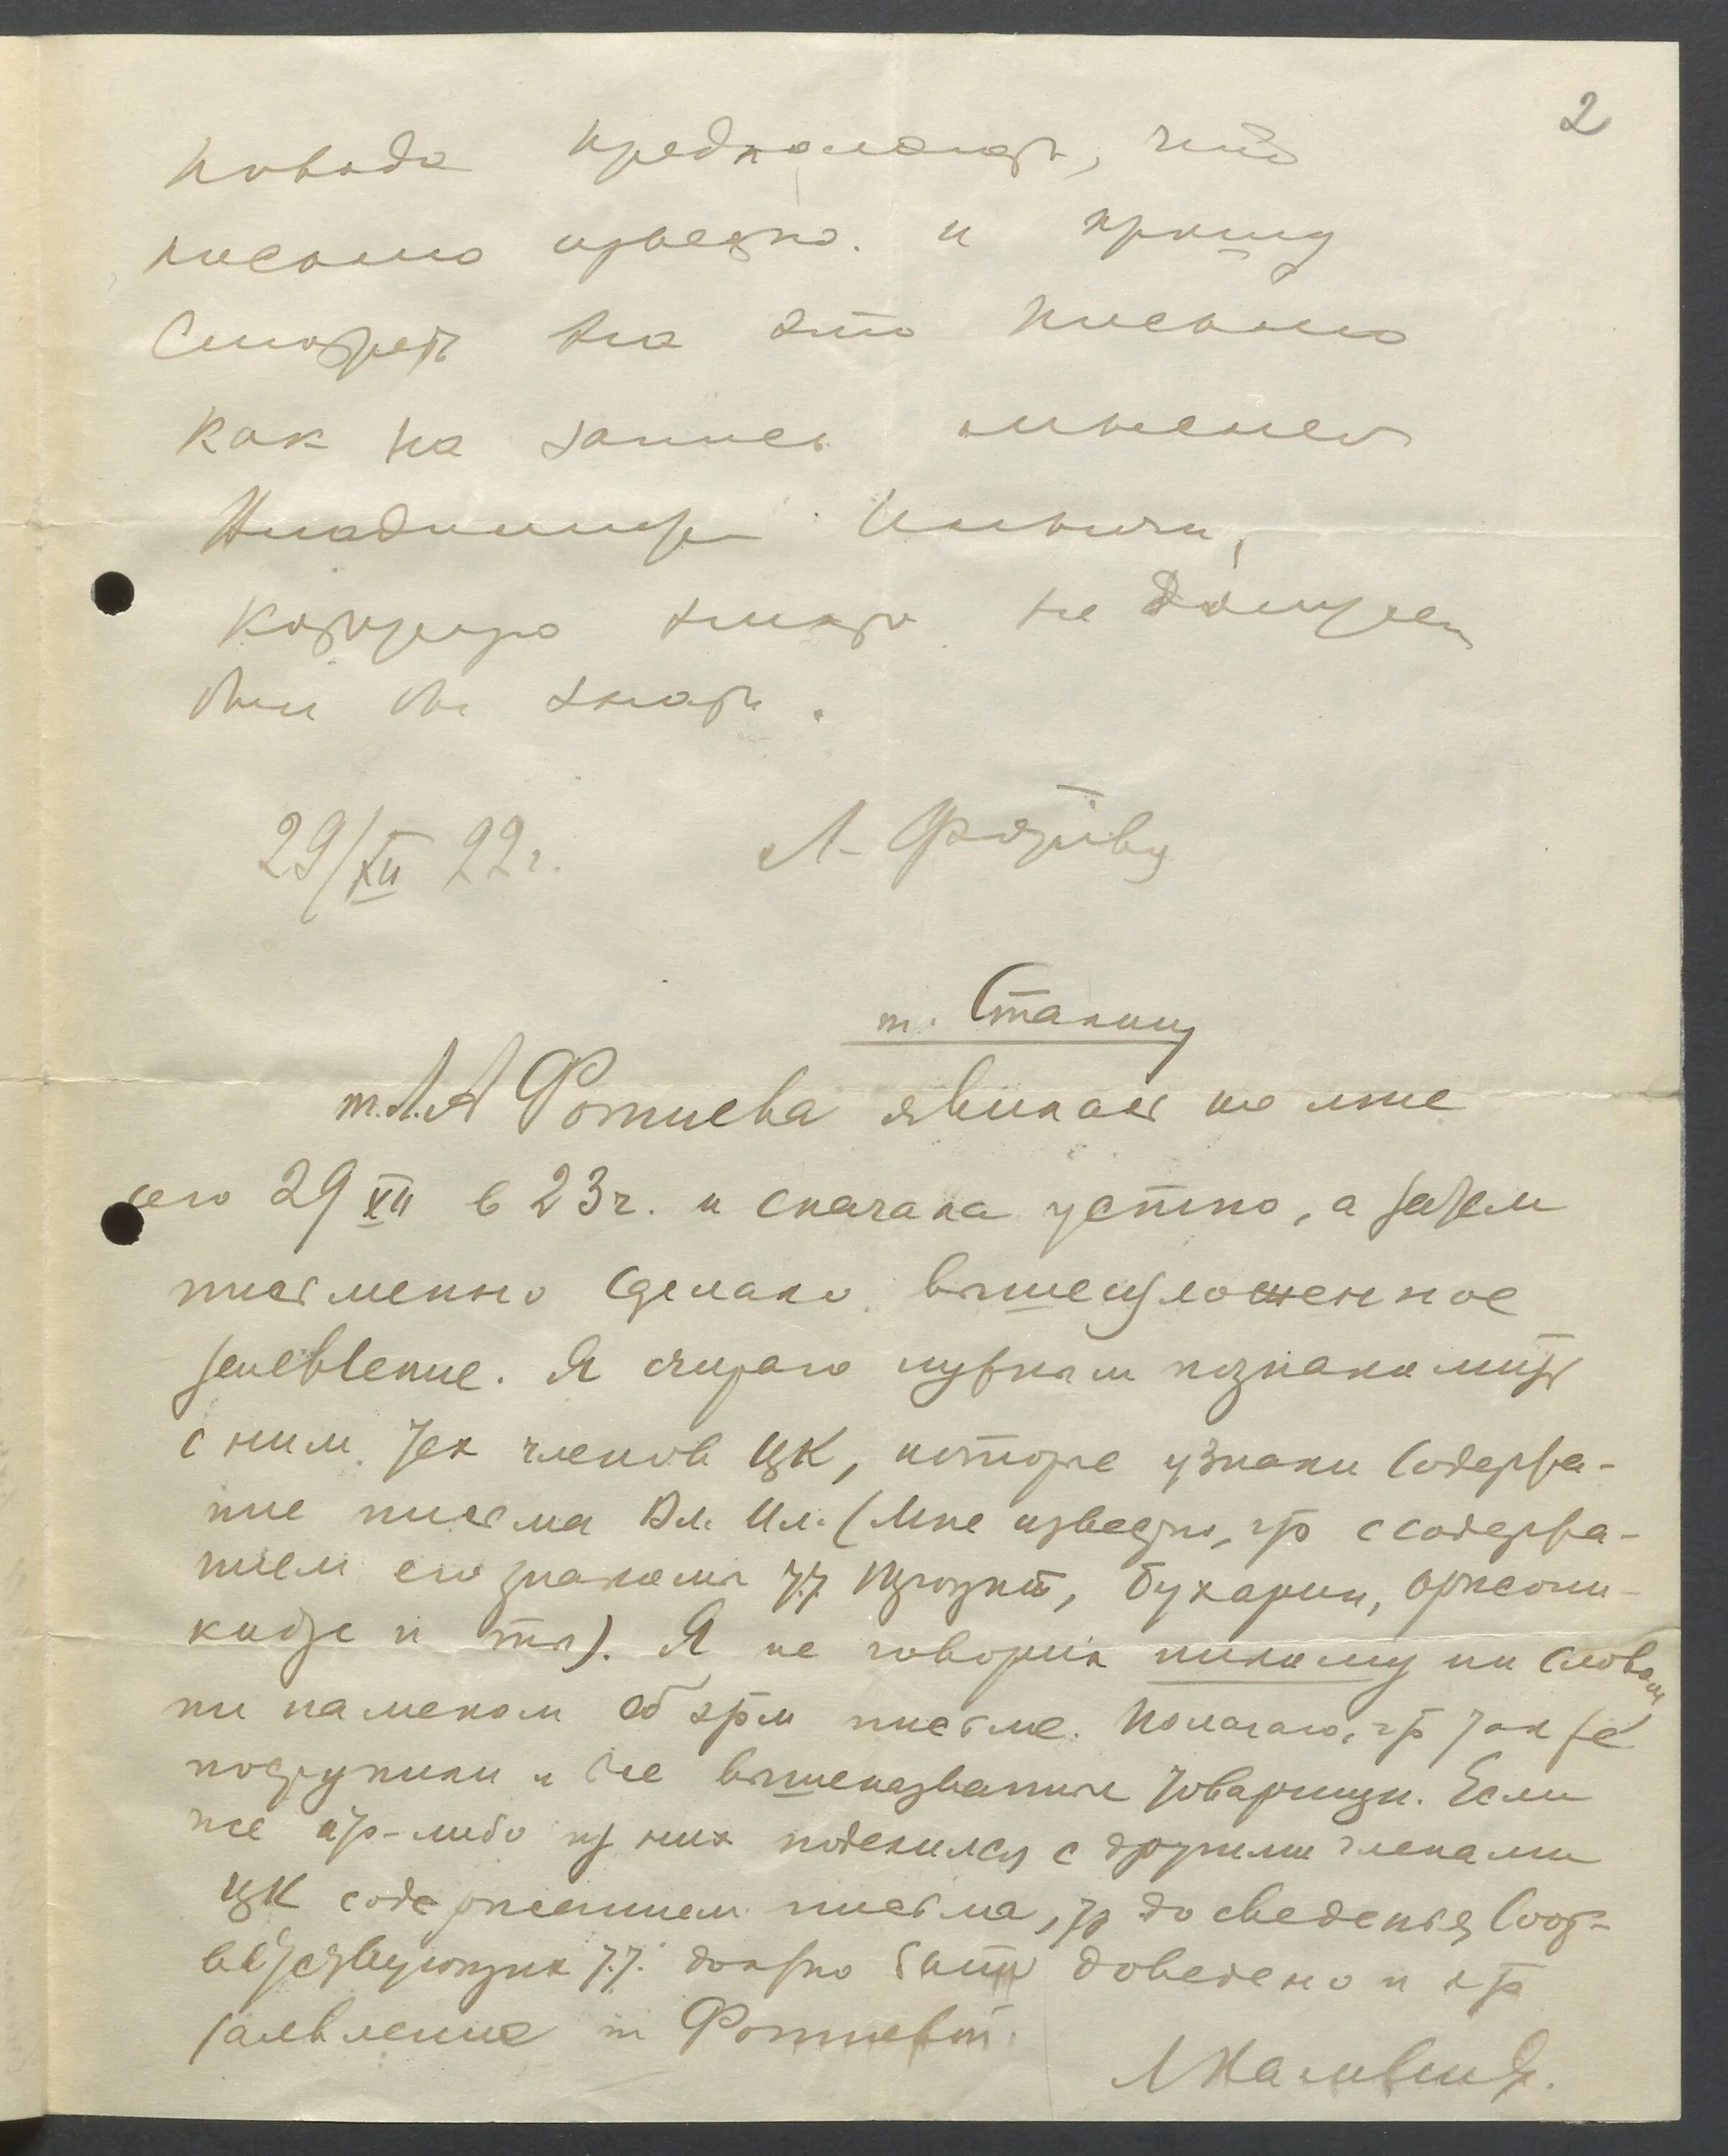 2
повода предполагать, что
письмо известно. и прошу
смотреть на это письмо
как на запись мнения
Владимира Ильича,
которую никто не должен
был бы знать.
29/XII 22г. Л. Фотиева
т. Сталину
т. Л.А Фотиева явилась ко мне
сего 29 XII в 23ч. и сначала устно, а затем
письменно сделала вышеизложенное
заявление. Я считаю нужным познакомить
с ним тех членов ЦК, которые узнали содержа-
ние письма Вл. Ил. (Мне известно, что с содержа-
нием его знакомы т.т. Троцкий, Бухарин, Орджони-
кидзе и ты). Я не говорил никому ни словом
ни намеком об этом письме. Полагаю, что так же
поступили и все вышеназванные товарищи. Если
же кто-либо из них поделился с другими членами
ЦК содержанием письма, то до сведения соот-
ветствующих т.т. должно быть доведено и это
заявление т Фотиевой.
Л Каменев.